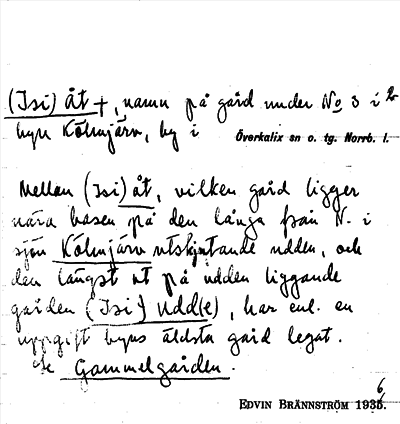 (Isi) åt +, namn på gård under No 3 i
byn Kölmjärv, by i Överkalix sn o. tg. Norrb. l.
Mellan (Isi) åt, vilken gård ligger
nära basen på den långa från N. i
sjön Kölmjärv utskjutande udden, och
den längst ut på udden liggande
gården (Isi) Udd(e), har enl. en
uppgift byns äldsta gård legat.
Se Gammelgården.
EDVIN BRÄNNSTRÖM 1936.